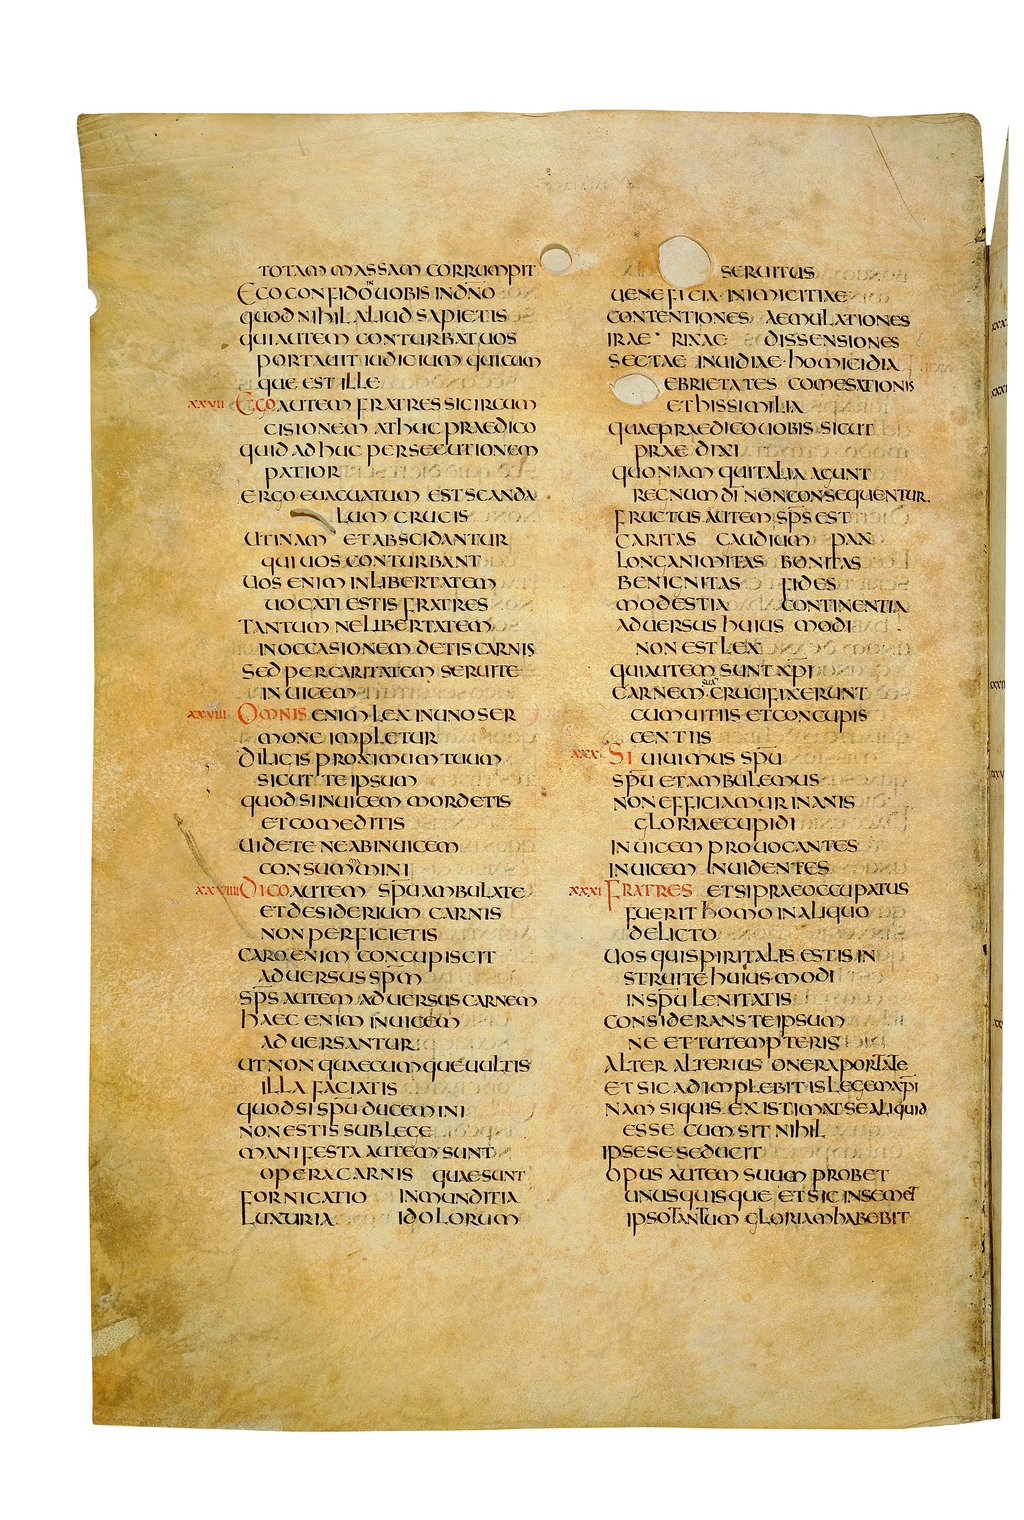 TOTAM MASSAM CORRUMPIT
EGO CONFIDO IN UOBIS IN DNO
QUOD NIHIL ALIUD SAPIETIS
QUI AUTEM CONTURBAT UOS
PORTAUIT IUDICIUM QUICUM
QUE EST ILLE
XXVII EGO AUTEM FRATRES SI CIRCUM
CISIONEM ATHUC PRAEDICO
QUID ADHUC PERSECUTIONEM
PATIOR
ERGO EUACUATUM EST SCANDA
LUM CRUCIS
UTINAM ET ABSCIDANTUR
QUI UOS CONTURBANT
UOS ENIM IN LIBERTATEM
UOCATI ESTIS FRATRES
TANTUM NE LIBERTATEM
IN OCCASIONEM DETIS CARNIS
SED PER CARITATEM SERUITE
IN UICEM
XXVIII OMNIS ENIM LEX IN UNO SER
MONE IMPLETUR
DILIGIS PROXIMUM TUUM
SICUT TE IPSUM
QUOD SI INUICEM MORDETIS
ET COMEDITIS
UIDETE NE AB INUICEM
CONSUMMINI
XXVIIII DICO AUTEM SPU AMBULATE
ET DESIDERIUM CARNIS
NON PERFICIETIS
CARO ENIM CONCUPISCIT
ADUERSUS SPM
SPS AUTEM ADUERSUS CARNEM
HAEC ENIM INUICEM
ADUERSANTUR
UT NON QUAECUMQUE UULTIS
ILLA FACIATIS
QUOD SI SPU DUCEMINI
NON ESTIS SUB LEGE
MANIFESTA AUTEM SUNT
OPERA CARNIS QUAE SUNT
FORNICATIO INMUNDITIA
LUXURIA IDOLORUM
SERUITUS
UENEFICIA INIMICITIAE
CONTENTIONES AEMULATIONES
IRAE RIXAE DISSENSIONES
SECTAE INUIDIAE HOMICIDIA
EBRIETATES COMESATIONIS
ET HIS SIMILIA
QUAE PRAEDICO UOBIS SICUT
PRAEDIXI
QUONIAM QUI TALIA AGUNT
REGNUM DI NON CONSEQUENTUR
FRUCTUS AUTEM SPS EST
CARITAS GAUDIUM PAX
LONGANIMITAS BONITAS
BENIGNITAS FIDES
MODESTIA CONTINENTIA
ADUERSUS HUIUS MODI
NON EST LEX
QUI AUTEM SUNT XPI
CARNEM SUA CRUCIFIXERUNT
CUM UITIIS ET CONCUPIS
CENTIIS
XXX SI UIUIMUS SPU
SPU ET AMBULEMUS
NON EFFICIAMUR INANIS
GLORIAE CUPIDI
INUICEM PROUOCANTES
INUICEM INUIDENTES
XXXI FRATRES ET SI PRAEOCCUPATUS
FUERIT HOMO IN ALIQUO
DELICTO
UOS QUI SPIRITALIS ESTIS IN
STRUITE HUIUS MODI
IN SPU LENITATIS
CONSIDERANS TE IPSUM
NE ET TU TEMPTERIS
ALTER ALTERIUS ONERA PORTATE
ET SIC ADIMPLEBITIS LEGEM XPI
NAM SI QUIS EXISTIMAT SE ALIQUID
ESSE CUM SIT NIHIL
IPSE SE SEDUCIT
OPUS AUTEM SUUM PROBET
UNUSQUISQUE ET SIC IN SEMET
IPSO TANTUM GLORIAM HABEBIT